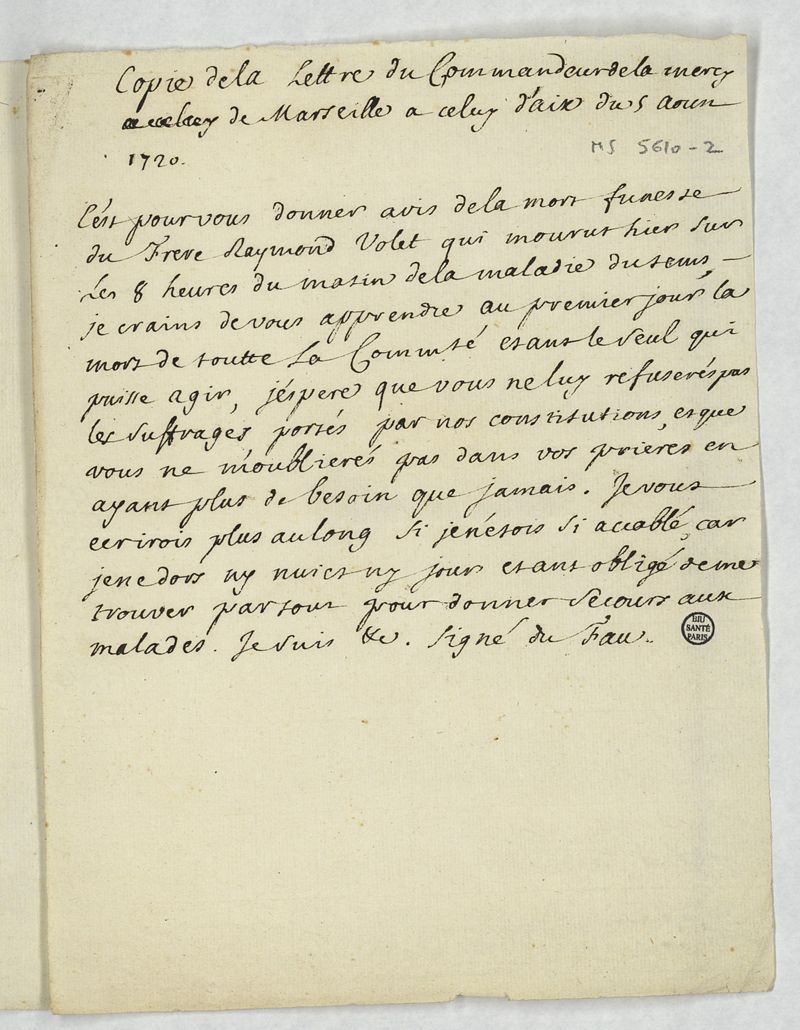 Copie de la Lettre du Commandeur de la mercy
a celuy de Marseille a celuy d'aix du 5 Aoust
1720.
MS 5610-2
C'est pour vous donner avis de la mort funeste
du Frere Raymond Volet qui mourut hier sur
les 8 heures du matin de la maladie du tems
je crains de vous apprendre au premier jour la
mort de toutte la Commté etant le seul qui
puisse agir, j'éspere que vous ne luy réfuserés pas
les suffrages portés par nos constitutions, et que
vous ne m'oublierés pas dans vos prieres en
ayant plus de besoin que jamais. Je vous
ecrirois plus au long si je n'étois si accablé, car
je ne dors ny nuict ny jour etant obligé de me
trouver par tout pour donner secours aux
malades. Je suis &c. Signé du Fau.
BIU
SANTÉ
PARIS